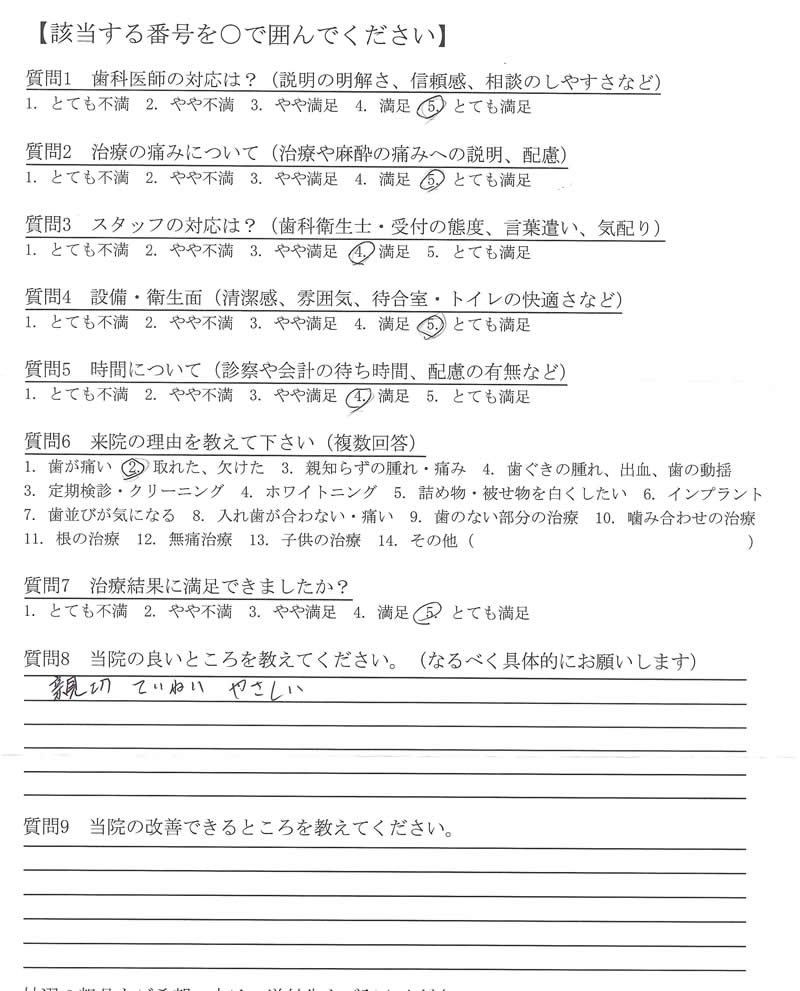 【該当する番号を○で囲んでください】
質問1　歯科医師の対応は？（説明の明解さ、信頼感、相談のしやすさなど）
1. とても不満　2. やや不満　3. やや満足　4. 満足　5. とても満足
質問2　治療の痛みについて（治療や麻酔の痛みへの説明、配慮）
1. とても不満　2. やや不満　3. やや満足　4. 満足　5. とても満足
質問3　スタッフの対応は？（歯科衛生士・受付の態度、言葉遣い、気配り）
1. とても不満　2. やや不満　3. やや満足　4. 満足　5. とても満足
質問4　設備・衛生面（清潔感、雰囲気、待合室・トイレの快適さなど）
1. とても不満　2. やや不満　3. やや満足　4. 満足　5. とても満足
質問5　時間について（診察や会計の待ち時間、配慮の有無など）
1. とても不満　2. やや不満　3. やや満足　4. 満足　5. とても満足
質問6　来院の理由を教えて下さい（複数回答）
1. 歯が痛い　2. 取れた、欠けた　3. 親知らずの腫れ・痛み　4. 歯ぐきの腫れ、出血、歯の動揺
3. 定期検診・クリーニング　4. ホワイトニング　5. 詰め物・被せ物を白くしたい　6. インプラント
7. 歯並びが気になる　8. 入れ歯が合わない・痛い　9. 歯のない部分の治療　10. 噛み合わせの治療
11. 根の治療　12. 無痛治療　13. 子供の治療　14. その他（　　　　　　　　　　　　　　　）
質問7　治療結果に満足できましたか？
1. とても不満　2. やや不満　3. やや満足　4. 満足　5. とても満足
質問8　当院の良いところを教えてください。（なるべく具体的にお願いします）
親切　ていねい　やさしい
質問9　当院の改善できるところを教えてください。